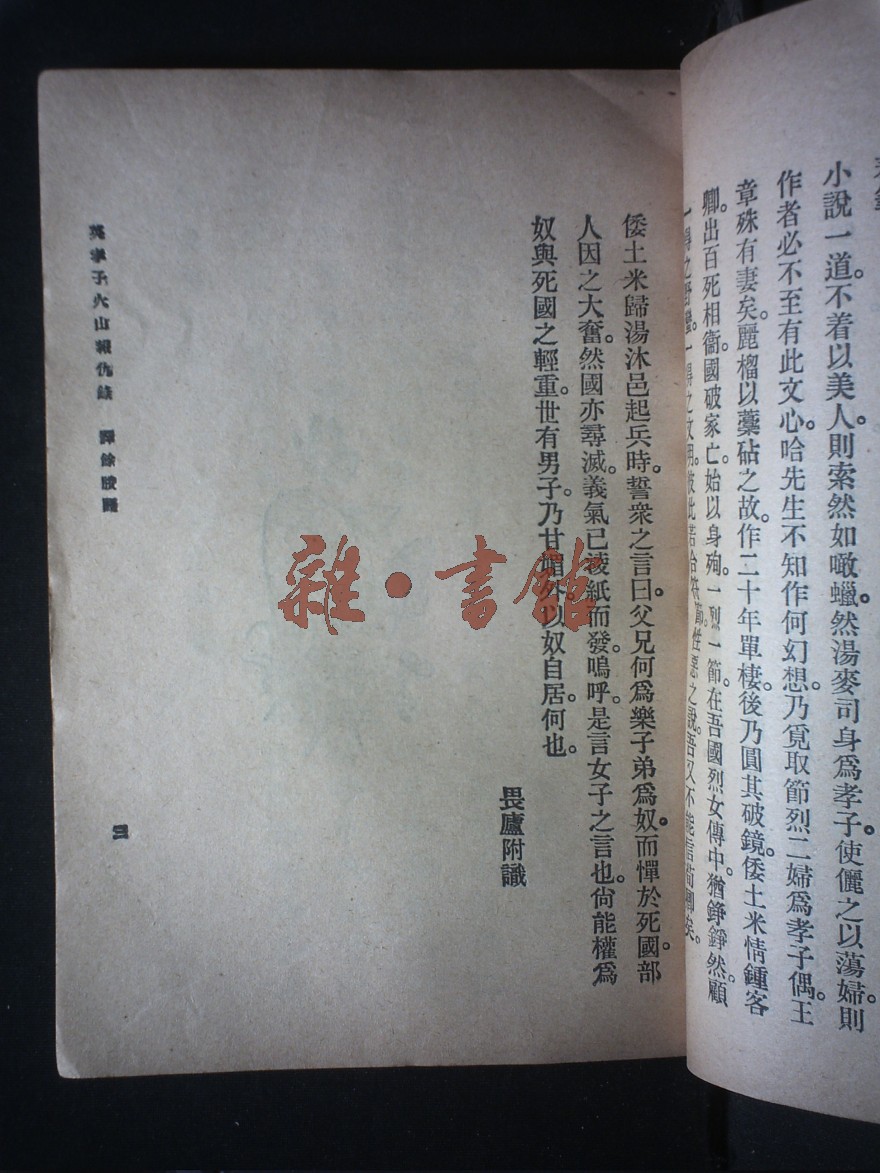 小說一道。不着以美人。則索然如噉蠟。然湯麥司身爲孝子。使儷之以蕩婦。則
作者必不至有此文心。哈先生不知作何幻想。乃覓取節烈二婦爲孝子偶。王
章殊有妻矣。麗榴以藁砧之故。作二十年單棲。後乃圓其破鏡。倭土米情鍾客
卿。出百死相衞。國破家亡。始以身殉。一烈一節。在吾國烈女傳中。猶錚錚然。顧
一得之野蠻。一得之文明。彼此若合符節。性惡之說。吾又不能信荀卿矣。
倭土米歸湯沐邑起兵時。誓衆之言曰。父兄何爲樂子弟爲奴。而憚於死國。部
人因之大奮。然國亦尋滅。義氣已淩紙而發。嗚呼。是言女子之言也。尙能權爲
奴與死國之輕重。世有男子。乃甘媚外以奴自居。何也。
畏廬附識
英孝子火山報仇錄 譯餘賸語
三
雜·書館